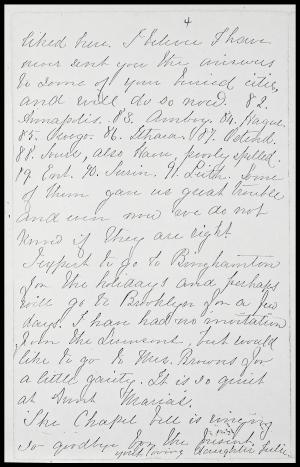 4
liked here. I believe I have
never sent you the answers
to some of your buried cities,
and will do so now. 82.
Annapolis. 83. Amboy. 84. Hague.
85. Oswego. 86. Ithaca. 87. Ostend.
88. also Ham, poorly spelled.
89. 90. Turin. 91. Leith. Some
of them gave us great trouble
and even now we do not
know if they are right.
I expect to go to Binghamton
for the holidays and perhaps
will go to Brooklyn for a few
days. I have had no invitation
from the but would
like to go to Mrs. Browns for
a little gaiety. It is so quiet
at Aunt Maria's.
The Chapel bell is ringing
so goodbye for the present
your loving daughter